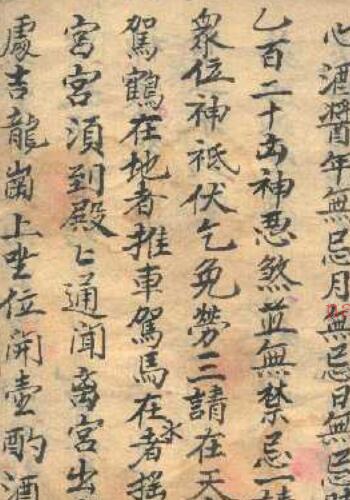 心酒醬年無忌月無忌日無忌
乙百二十凶神惡煞並無禁忌一
衆位神祗伏乞免勞三請在天
駕鶴在地者推車駕馬在水者搖
宮宮須到殿〻通聞离宮出
處吉龍崗上坐位開壺酌酒